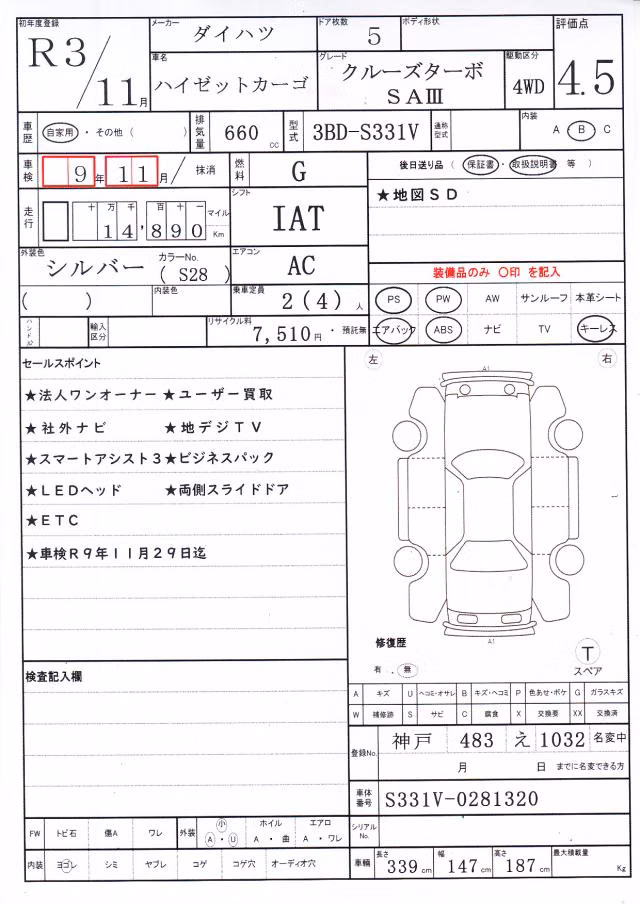 初年度登録 R3/11月
メーカー ダイハツ
ドア枚数 5
ボディ形状
評価点 4.5
車名 ハイゼットカーゴ
グレード クルーズターボ
SAⅢ
駆動区分 4WD
車歴 自家用・その他( )
排気量 660 cc
型式 3BD-S331V
通称型式
内装 A・B・C
車検 9年11月/ 抹消
燃料 G
後日送り品(保証書・取扱説明書 等)
★地図SD
走行 十万千百十一
14,890 マイル Km
シフト IAT
外装色 シルバー
カラーNo. (S28)
エアコン AC
装備品のみ 〇印 を記入
( )
内装色
乗車定員 2(4)人
PS PW AW サンルーフ 本革シート
ハンドル
輸入区分
リサイクル料 7,510円・預託無
エアバック ABS ナビ TV キーレス
セールスポイント
★法人ワンオーナー★ユーザー買取
★社外ナビ ★地デジTV
★スマートアシスト3★ビジネスパック
★LEDヘッド ★両側スライドドア
★ETC
★車検R9年11月29日迄
左 右
A1
A1
修復歴
有 ・ 無
T
スペア
検査記入欄
A キズ U ヘコミ・オサレ B キズ・ヘコミ P 色あせ・ボケ G ガラスキズ
W 補修跡 S サビ C 腐食 X 交換要 XX 交換済
登録No. 神戸 483 え 1032 名変中
月 日 までに名変できる方
車体番号 S331V-0281320
FW トビ石 傷A ワレ
外装 小 A・U
ホイル A・曲
エアロ A・ワレ
シリアルNo.
内装 ヨゴレ シミ ヤブレ コゲ コゲ穴 オーディオ穴
車輌 長さ 339cm 幅 147cm 高さ 187cm 最大積載量 Kg